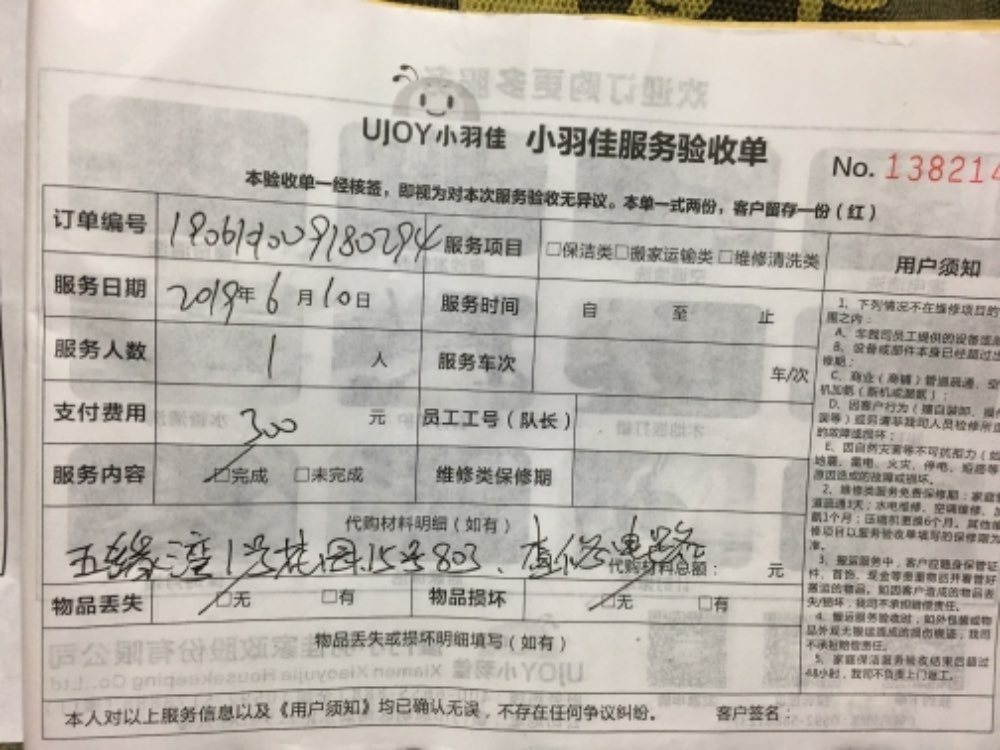 UJOY小羽佳 小羽佳服务验收单
No. 138214
本验收单一经核签，即视为对本次服务验收无异议。本单一式两份，客户留存一份（红）
订单编号 服务项目 □保洁类□搬家运输类□维修清洗类
用户须知
服务日期 2019年6月10日 服务时间 自 至 止
服务人数 1 人 服务车次 车/次
支付费用 300 元 员工工号（队长）
服务内容 □完成 □未完成 维修类保修期
代购材料明细（如有）
五缘湾1号花园15号803、查修电路
代购材料总额： 元
物品丢失 □无 □有 物品损坏 □无 □有
物品丢失或损坏明细填写（如有）
本人对以上服务信息以及《用户须知》均已确认无误，不存在任何争议纠纷。 客户签名：
1、下列情况不在维修项目的
限之内：
A、非我司员工提供的设备或
B、设备或部件本身已经超过
修期；
C、商业（商铺）管道疏通、空
机加氨（新机或漏氨）；
D、因客户行为（擅自装卸、
误等）或另请非我司人员检修所
的故障或损坏；
E、因自然灾害等不可抗拒力（如
地震、雷电、火灾、停电、短路等
原因造成的故障或损坏。
2、维修类服务免费保修期：家庭
道疏通3天；水电维修、空调维修、
氨1个月；压缩机更换6个月。其他
修项目以服务验收单填写的保修期为
准。
3、搬运服务中，客户应随身保管证
件、首饰、现金等贵重物品并看管好
搬运的物品。如因客户造成的物品丢
失/损坏，我司不承担赔偿责任。
4、搬运服务验收时，如外包装或物
品外观无搬运造成的损伤痕迹，我司
不承担赔偿责任。
5、家庭保洁服务验收结束后超过
48小时，我司不负责上门返工。